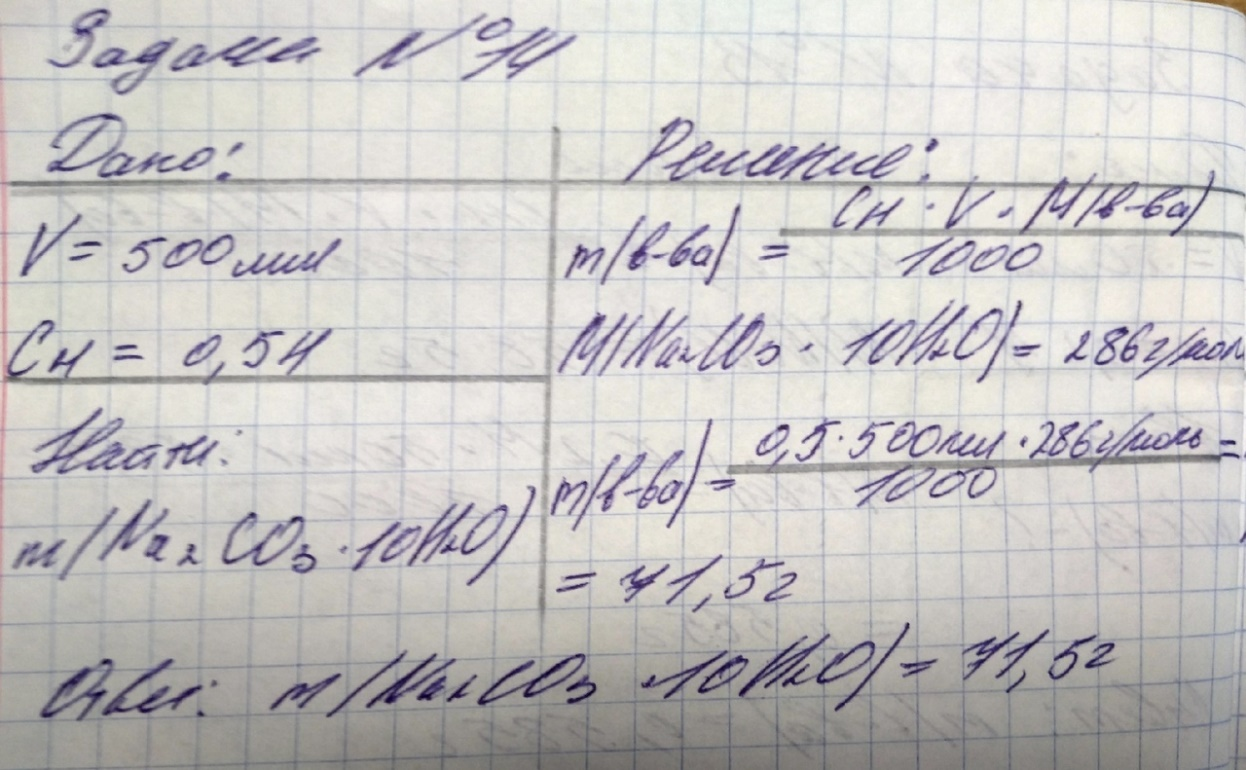 Задача №14
Дано:
V = 500 мл
Cн = 0,5н
Найти:
m(Na₂CO₃·10H₂O)
Решение:
m(в-ва) = Cн · V · M(в-ва) / 1000
M(Na₂CO₃ · 10H₂O) = 286 г/моль
m(в-ва) = 0,5 · 500 мл · 286 г/моль / 1000 =
= 71,5г
Ответ: m(Na₂CO₃ · 10H₂O) = 71,5г